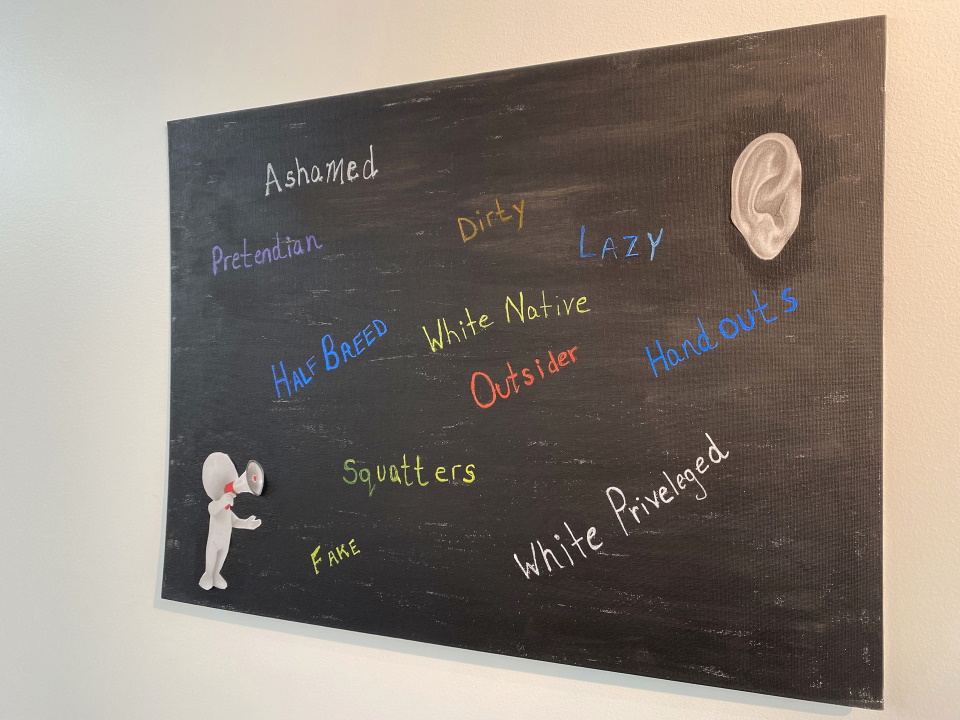 Ashamed
Dirty
Pretendian
LAZY
White Native
Handouts
HALF BREED
Outsider
Squatters
White Priveleged
FAKE